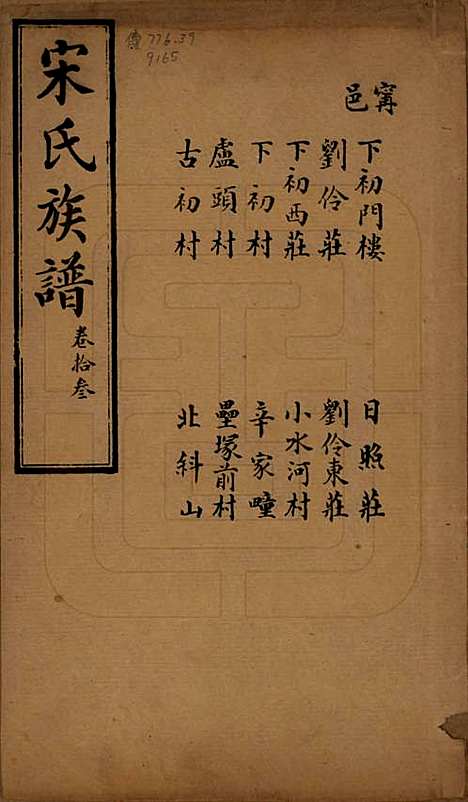 宋氏族譜
卷拾叁
傳 776.39
9165
甯邑
下初門樓
劉伶莊
下初西莊
下初村
盧頭村
古初村
日照莊
劉伶東莊
小水河村
辛家疃
壘塚前村
北斜山